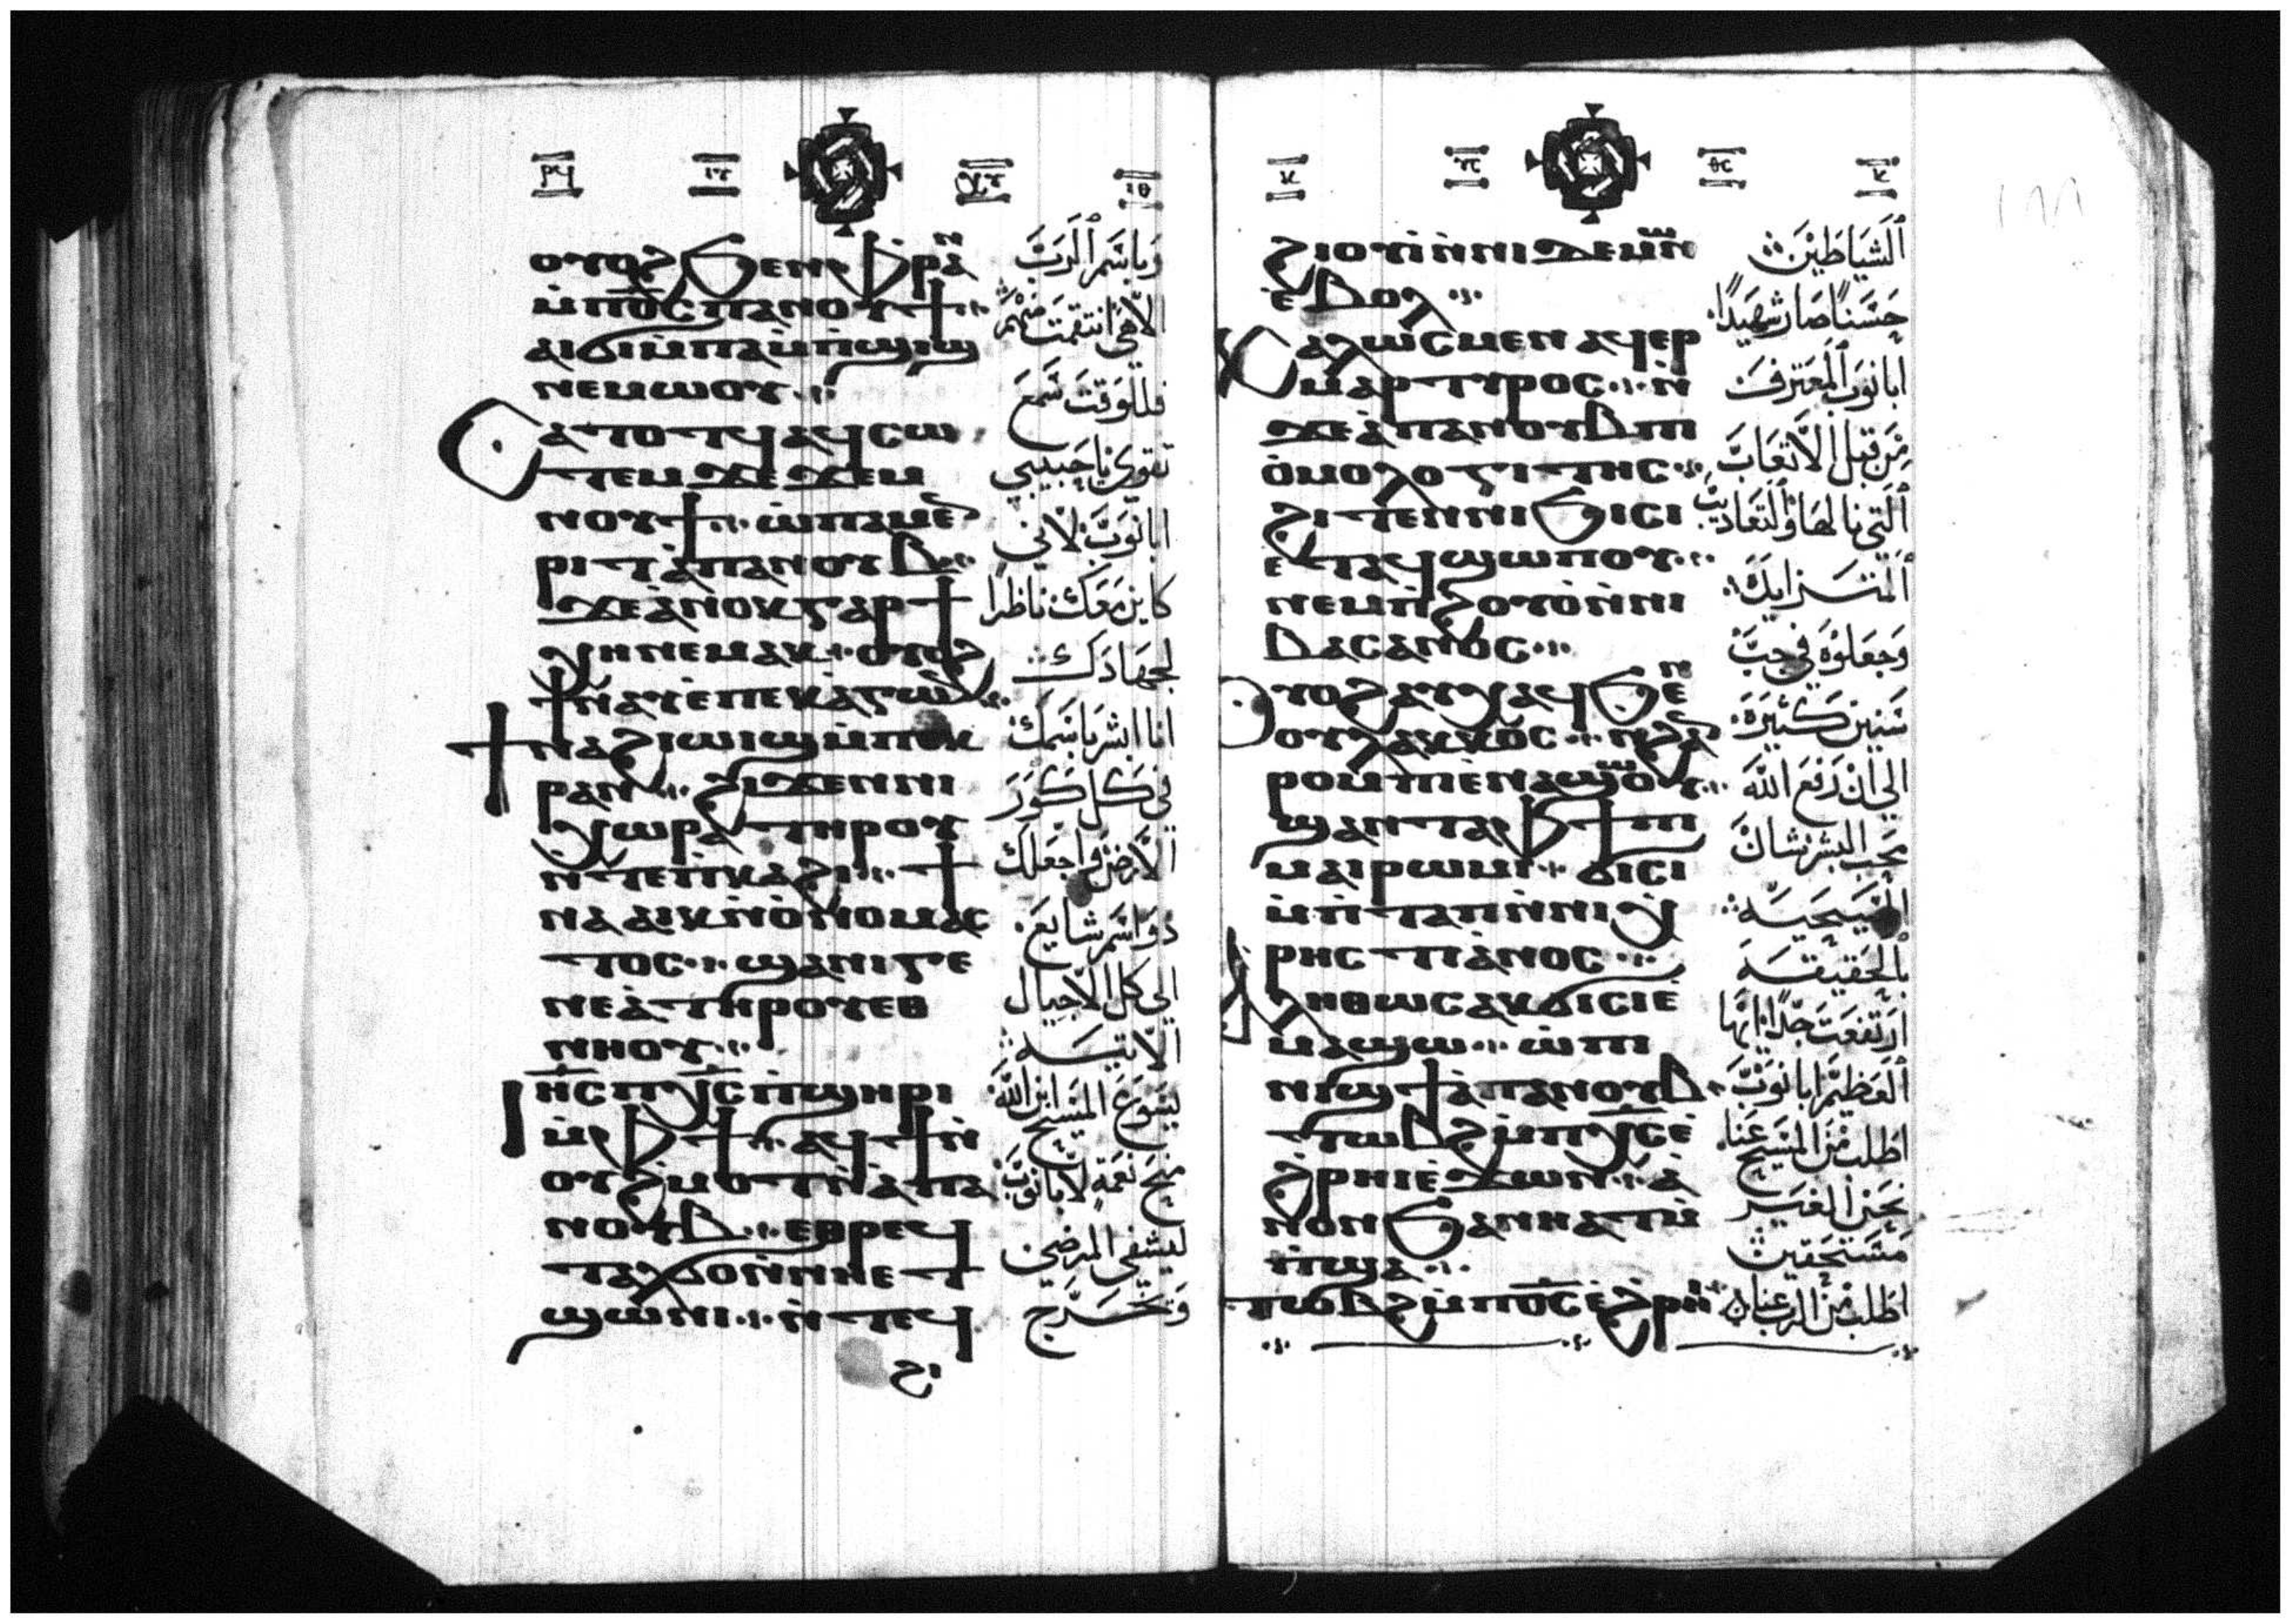 ⲣϥ ⲓⲅ ⲓⲑ
ⲟⲩⲟϩ ϧⲉⲛ ⲫ̀ⲣⲁⲛ
ⲙ̀ⲡϭ̅ⲥ̅ ⲡⲁⲛⲟⲩϯ
ⲁⲓϭⲓ ⲙ̀ⲡⲁⲙ̀ⲡ̀ϣⲓϣ
ⲛⲉⲙⲱⲟⲩ
ⲥⲁⲧⲟⲧϥ ⲁϥⲥⲱ
ⲧⲉⲙ ϫⲉ ϫⲉⲙ
ⲛⲟⲩϯ ⲱ̀ ⲡⲁⲙⲉⲛ
ⲣⲓⲧ ⲁ̀ⲡⲁⲛⲟⲩⲃ
ϫⲉ ⲁ̀ⲛⲟⲕ ⲅⲁⲣ ϯ
ⲭⲏ ⲛⲉⲙⲁⲕ ⲟⲩⲟϩ
ϯⲛⲁⲩ ⲉ̀ⲡⲉⲕⲁ̀ⲅⲱⲛ
ϯⲛⲁϩⲓⲱⲓϣ ⲙ̀ⲡⲉⲕ
ⲣⲁⲛ ϩⲓϫⲉⲛ ⲛⲓ
ⲭⲱⲣⲁ ⲧⲏⲣⲟⲩ
ⲛ̀ⲧⲉ ⲡ̀ⲕⲁϩⲓ ϯ
ⲛⲁⲁⲓⲕ ⲛ̀ⲟ̀ⲛⲟⲙⲁⲥ
ⲧⲟⲥ ϣⲁ ⲛⲓⲅⲉ
ⲛⲉⲁ̀ ⲧⲏⲣⲟⲩ ⲉⲑ
ⲛⲏⲟⲩ
ⲓⲏ̅ⲥ̅ ⲡⲭ̅ⲥ̅ ⲡ̀ϣⲏⲣⲓ
ⲙ̀ⲫϯ ⲁϥϯ ⲛ̀
ⲟⲩϩ̀ⲙⲟⲧ ⲛ̀ⲁ̀ⲡⲁ
ⲛⲟⲩⲃ ⲉⲑⲣⲉϥ
ⲧⲁⲗϭⲟ ⲛ̀ⲛⲏⲉⲧ
ϣⲱⲛⲓ ⲛ̀ⲧⲉϥ
ϩⲓ
وَباسْم الرَبّ
الاهي انتقمت منهم
فللوقت سَمعَ
تقوى ياحَبيبي
ابانوب لاني
كاين معك ناظرا
لجهادك
انا ابشر باسمك
في كل كور
الارض واجعلك
ذو اسم شايع
الى كل الاجيال
الاتيه
يسوع المسيح ابن الله
منح نعمة لابانوب
ليشفي المرضى
وَيخرج
ⲕ ⲕ
ϩⲓⲟⲩⲓ̀ ⲛ̀ⲛⲓⲇⲉⲙⲱⲛ
ⲉ̀ⲃⲟⲗ
ⲕⲁⲗⲱⲥ ⲙⲉⲛ ⲁϥⲉⲣ
ⲙⲁⲣⲧⲩⲣⲟⲥ ⲛ̀
ϫⲉ ⲁ̀ⲡⲁⲛⲟⲩⲃ ⲡⲓ
ⲟ̀ⲙⲟⲗⲟⲅⲓⲧⲏⲥ
ϩⲓⲧⲉⲛ ⲛⲓϧⲓⲥⲓ
ⲉ̀ⲧⲁϥϣⲱⲡⲟⲩ
ⲛⲉⲙ ⲡ̀ϩⲟⲩⲟ̀ ⲛ̀ⲛⲓ
ⲃⲁⲥⲁⲛⲟⲥ
ⲟⲩⲟϩ ⲁⲩⲭⲁϥ ϧⲉⲛ
ⲟⲩⲗⲁⲕⲕⲟⲥ ⲛ̀ϩⲁⲛ
ⲣⲟⲙⲡⲓ ⲉⲛⲁϣⲱⲟⲩ
ϣⲁⲛⲧⲁ ⲫϯ ⲡⲓ
ⲙⲁⲓⲣⲱⲙⲓ ϭⲓⲥⲓ
ⲙ̀ⲡ̀ⲧⲁⲡ ⲛ̀ⲛⲓⲭ
ⲣⲏⲥⲧⲓⲁⲛⲟⲥ
ⲁⲗⲏⲑⲱⲥ ⲁⲕϭⲓⲥⲓ ⲉ̀
ⲙⲁϣⲱ ⲱ̀ ⲡⲓ
ⲛⲓϣϯ ⲁ̀ⲡⲁⲛⲟⲩⲃ
ⲧⲱⲃϩ ⲙ̀ⲡⲭ̅ⲥ̅ ⲉ̀
ϩ̀ⲣⲏⲓ ⲉ̀ϫⲱⲛ ⲁ̀
ⲛⲟⲛ ϧⲁ ⲛⲏⲁⲧⲙ̀
ⲡ̀ϣⲁ
ⲧⲱⲃϩ ⲙ̀ⲡϭ̅ⲥ̅ ⲉ̀ϩ̀ⲣⲏⲓ
١٨٨
الشياطين
حسنًا صار شهيدًا
ابانوب المعترف
من قبل الاتعاب
التي نالها والتعاديب
المتزايدة
وَجعلوه في جب
سنين كثيرة
الى ان رفع الله
محب البشر شان
المسيحيه
بالحقيقه
ارتفعت جدًا ايها
العظيم ابانوب
اطلب من المسيح عنا
نحن الغير
مستحقين
اطلب من الرب عنا